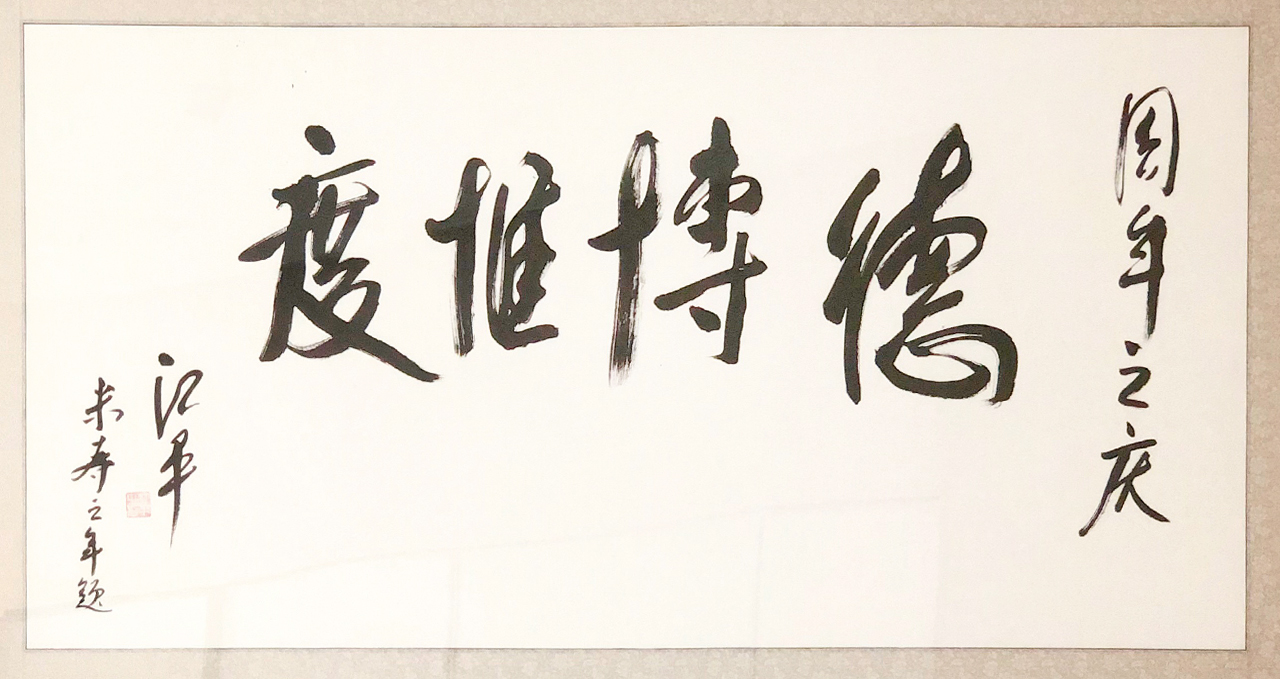 周年之庆
德博惟度
江平
米寿之年题